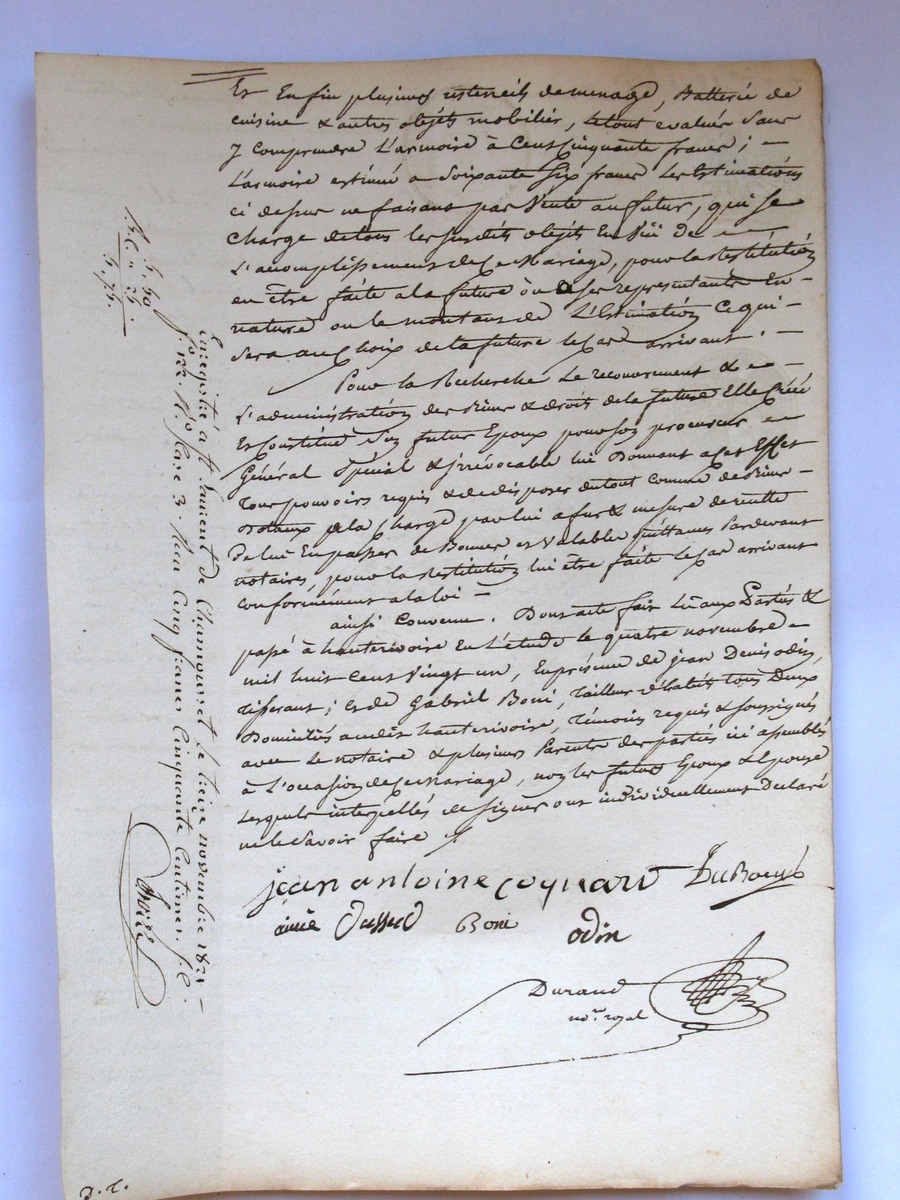 Et Enfin plusieurs ustencils de menage, Batterie de
cuisine & autres objets mobilier, le tout evalué Sans
y comprendre L'armoire à Cent cinquante francs ; —
L'armoire estimée a Soixante Six francs Les Estimations
ci dessus ne faisant pas Vente au futur, qui se
Charge de tous les susdits objets En Vüe de —
L'acomplissement de Ce Mariage, pour la Restitution
en être faite a la future ou a ses representants En
nature ou le montant de L'Estimation Ce qui —
Sera au Choix de la future le Cas arrivant. —
Pour la Recherche Le recouvrement & —
L'administration des Biens & droits de la future Elle Créé
Et Constitue Son futur Epoux pour son procureur —
Général Spécial & irrévocable lui Donnant a cet Effet
Tous pouvoirs requis & de disposer du tout comme de Biens —
Dotaux a la Charge par lui a fur & mesure de recette
De lui En passer de Bonnes et Valables quittances Pardevant
notaires, pour la Restitution lui être faite le Cas arrivant
conformément a la loi —
ainsi Convenu. Dont acte fait Lu aux Parties &
passé à hauterivoire En L'étude le quatre novembre —
mil huit Cent Vingt un, En présence de jean Denis odin
Tisserant ; Et de Gabriel Boni, Tailleur d'habits tous Deux
Domiciliés audit hauterivoire, Témoins requis & soussignés
avec le notaire & plusieurs Parents des parties ici assemblés
à L'occasion de Ce Mariage, non les futurs Epoux & Epouse
Lesquels interpellés de Signer ont individuellement Déclaré
ne le Savoir faire
jean antoine coquard DuBoeuf
aimé Boni odin
Durand
nore. royal
5. 50
55
Enregistré à St Laurent de Chamousset le treize novembre 1821 —
fo. 122 Ro. Case 3 Recu Cinq francs Cinquante Centimes
D. T.